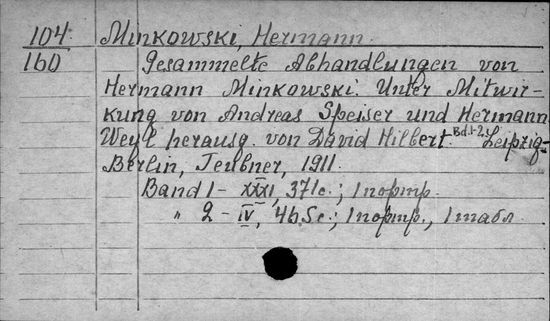 104 Minkowski, Hermann.
160 Gesammelte Abhandlungen von
Hermann Minkowski. Unter Mitwir-
kung von Andreas Speiser und Hermann
Weyl herausg. von David Hilbert. Bd. 1-2. Leipzig-
Berlin, Teubner, 1911.
Band 1 - XXXI, 371 с.; 1 портр.
" 2 - IV, 465 с.; 1 портр., 1 табл.